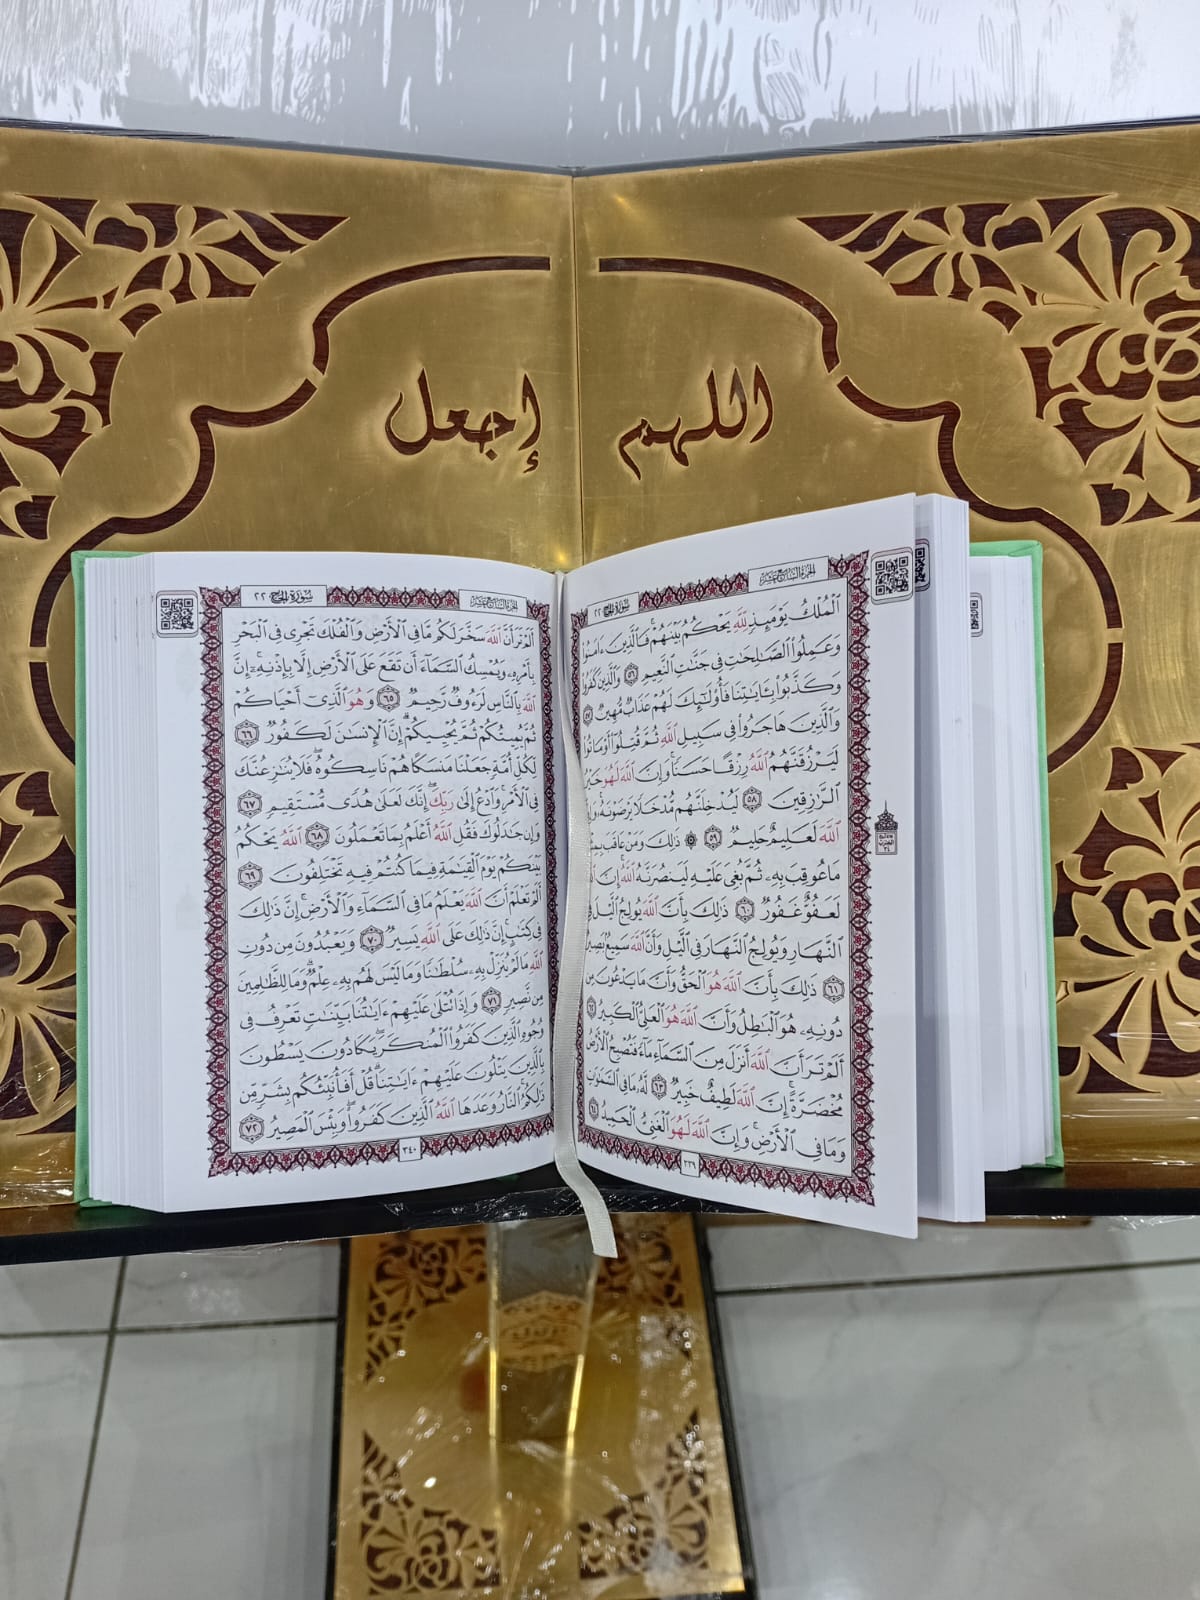 اللهم إجعل
الجزء السابع عشر
سورة الحج ٢٢
ٱلْمُلْكُ يَوْمَئِذٍ لِّلَّهِ يَحْكُمُ بَيْنَهُمْ ۚ فَٱلَّذِينَ ءَامَنُوا۟
وَعَمِلُوا۟ ٱلصَّـٰلِحَـٰتِ فِى جَنَّـٰتِ ٱلنَّعِيمِ ٥٦ وَٱلَّذِينَ كَفَرُوا۟
وَكَذَّبُوا۟ بِـَٔايَـٰتِنَا فَأُو۟لَـٰٓئِكَ لَهُمْ عَذَابٌ مُّهِينٌ ٥٧
وَٱلَّذِينَ هَاجَرُوا۟ فِى سَبِيلِ ٱللَّهِ ثُمَّ قُتِلُوٓا۟ أَوْ مَاتُوا۟
لَيَرْزُقَنَّهُمُ ٱللَّهُ رِزْقًا حَسَنًا ۚ وَإِنَّ ٱللَّهَ لَهُوَ خَيْرُ
ٱلرَّٰزِقِينَ ٥٨ لَيُدْخِلَنَّهُم مُّدْخَلًا يَرْضَوْنَهُۥ ۗ وَإِنَّ
ٱللَّهَ لَعَلِيمٌ حَلِيمٌ ٥٩ ۞ ذَٰلِكَ وَمَنْ عَاقَبَ بِمِثْلِ
مَا عُوقِبَ بِهِۦ ثُمَّ بُغِىَ عَلَيْهِ لَيَنصُرَنَّهُ ٱللَّهُ ۗ إِنَّ ٱللَّهَ
لَعَفُوٌّ غَفُورٌ ٦٠ ذَٰلِكَ بِأَنَّ ٱللَّهَ يُولِجُ ٱلَّيْلَ فِى
ٱلنَّهَارِ وَيُولِجُ ٱلنَّهَارَ فِى ٱلَّيْلِ وَأَنَّ ٱللَّهَ سَمِيعٌۢ بَصِيرٌ
٦١ ذَٰلِكَ بِأَنَّ ٱللَّهَ هُوَ ٱلْحَقُّ وَأَنَّ مَا يَدْعُونَ مِن
دُونِهِۦ هُوَ ٱلْبَـٰطِلُ وَأَنَّ ٱللَّهَ هُوَ ٱلْعَلِىُّ ٱلْكَبِيرُ ٦٢
أَلَمْ تَرَ أَنَّ ٱللَّهَ أَنزَلَ مِنَ ٱلسَّمَآءِ مَآءً فَتُصْبِحُ ٱلْأَرْضُ
مُخْضَرَّةً ۗ إِنَّ ٱللَّهَ لَطِيفٌ خَبِيرٌ ٦٣ لَّهُۥ مَا فِى ٱلسَّمَـٰوَٰتِ
وَمَا فِى ٱلْأَرْضِ ۗ وَإِنَّ ٱللَّهَ لَهُوَ ٱلْغَنِىُّ ٱلْحَمِيدُ ٦٤
٣٣٩
الجزء السابع عشر
سورة الحج ٢٢
أَلَمْ تَرَ أَنَّ ٱللَّهَ سَخَّرَ لَكُم مَّا فِى ٱلْأَرْضِ وَٱلْفُلْكَ تَجْرِى فِى ٱلْبَحْرِ
بِأَمْرِهِۦ وَيُمْسِكُ ٱلسَّمَآءَ أَن تَقَعَ عَلَى ٱلْأَرْضِ إِلَّا بِإِذْنِهِۦٓ ۗ إِنَّ
ٱللَّهَ بِٱلنَّاسِ لَرَءُوفٌ رَّحِيمٌ ٦٥ وَهُوَ ٱلَّذِىٓ أَحْيَاكُمْ
ثُمَّ يُمِيتُكُمْ ثُمَّ يُحْيِيكُمْ ۗ إِنَّ ٱلْإِنسَـٰنَ لَكَفُورٌ ٦٦
لِّكُلِّ أُمَّةٍ جَعَلْنَا مَنسَكًا هُمْ نَاسِكُوهُ ۖ فَلَا يُنَـٰزِعُنَّكَ
فِى ٱلْأَمْرِ ۚ وَٱدْعُ إِلَىٰ رَبِّكَ ۖ إِنَّكَ لَعَلَىٰ هُدًى مُّسْتَقِيمٍ ٦٧
وَإِن جَـٰدَلُوكَ فَقُلِ ٱللَّهُ أَعْلَمُ بِمَا تَعْمَلُونَ ٦٨ ٱللَّهُ يَحْكُمُ
بَيْنَكُمْ يَوْمَ ٱلْقِيَـٰمَةِ فِيمَا كُنتُمْ فِيهِ تَخْتَلِفُونَ ٦٩
أَلَمْ تَعْلَمْ أَنَّ ٱللَّهَ يَعْلَمُ مَا فِى ٱلسَّمَآءِ وَٱلْأَرْضِ ۗ إِنَّ ذَٰلِكَ
فِى كِتَـٰبٍ ۚ إِنَّ ذَٰلِكَ عَلَى ٱللَّهِ يَسِيرٌ ٧٠ وَيَعْبُدُونَ مِن دُونِ
ٱللَّهِ مَا لَمْ يُنَزِّلْ بِهِۦ سُلْطَـٰنًا وَمَا لَيْسَ لَهُم بِهِۦ عِلْمٌ ۗ وَمَا لِلظَّـٰلِمِينَ
مِن نَّصِيرٍ ٧١ وَإِذَا تُتْلَىٰ عَلَيْهِمْ ءَايَـٰتُنَا بَيِّنَـٰتٍ تَعْرِفُ فِى
وُجُوهِ ٱلَّذِينَ كَفَرُوا۟ ٱلْمُنكَرَ ۖ يَكَادُونَ يَسْطُونَ
بِٱلَّذِينَ يَتْلُونَ عَلَيْهِمْ ءَايَـٰتِنَا ۗ قُلْ أَفَأُنَبِّئُكُم بِشَرٍّ مِّن
ذَٰلِكُمُ ۗ ٱلنَّارُ وَعَدَهَا ٱللَّهُ ٱلَّذِينَ كَفَرُوا۟ ۖ وَبِئْسَ ٱلْمَصِيرُ ٧٢
٣٤٠